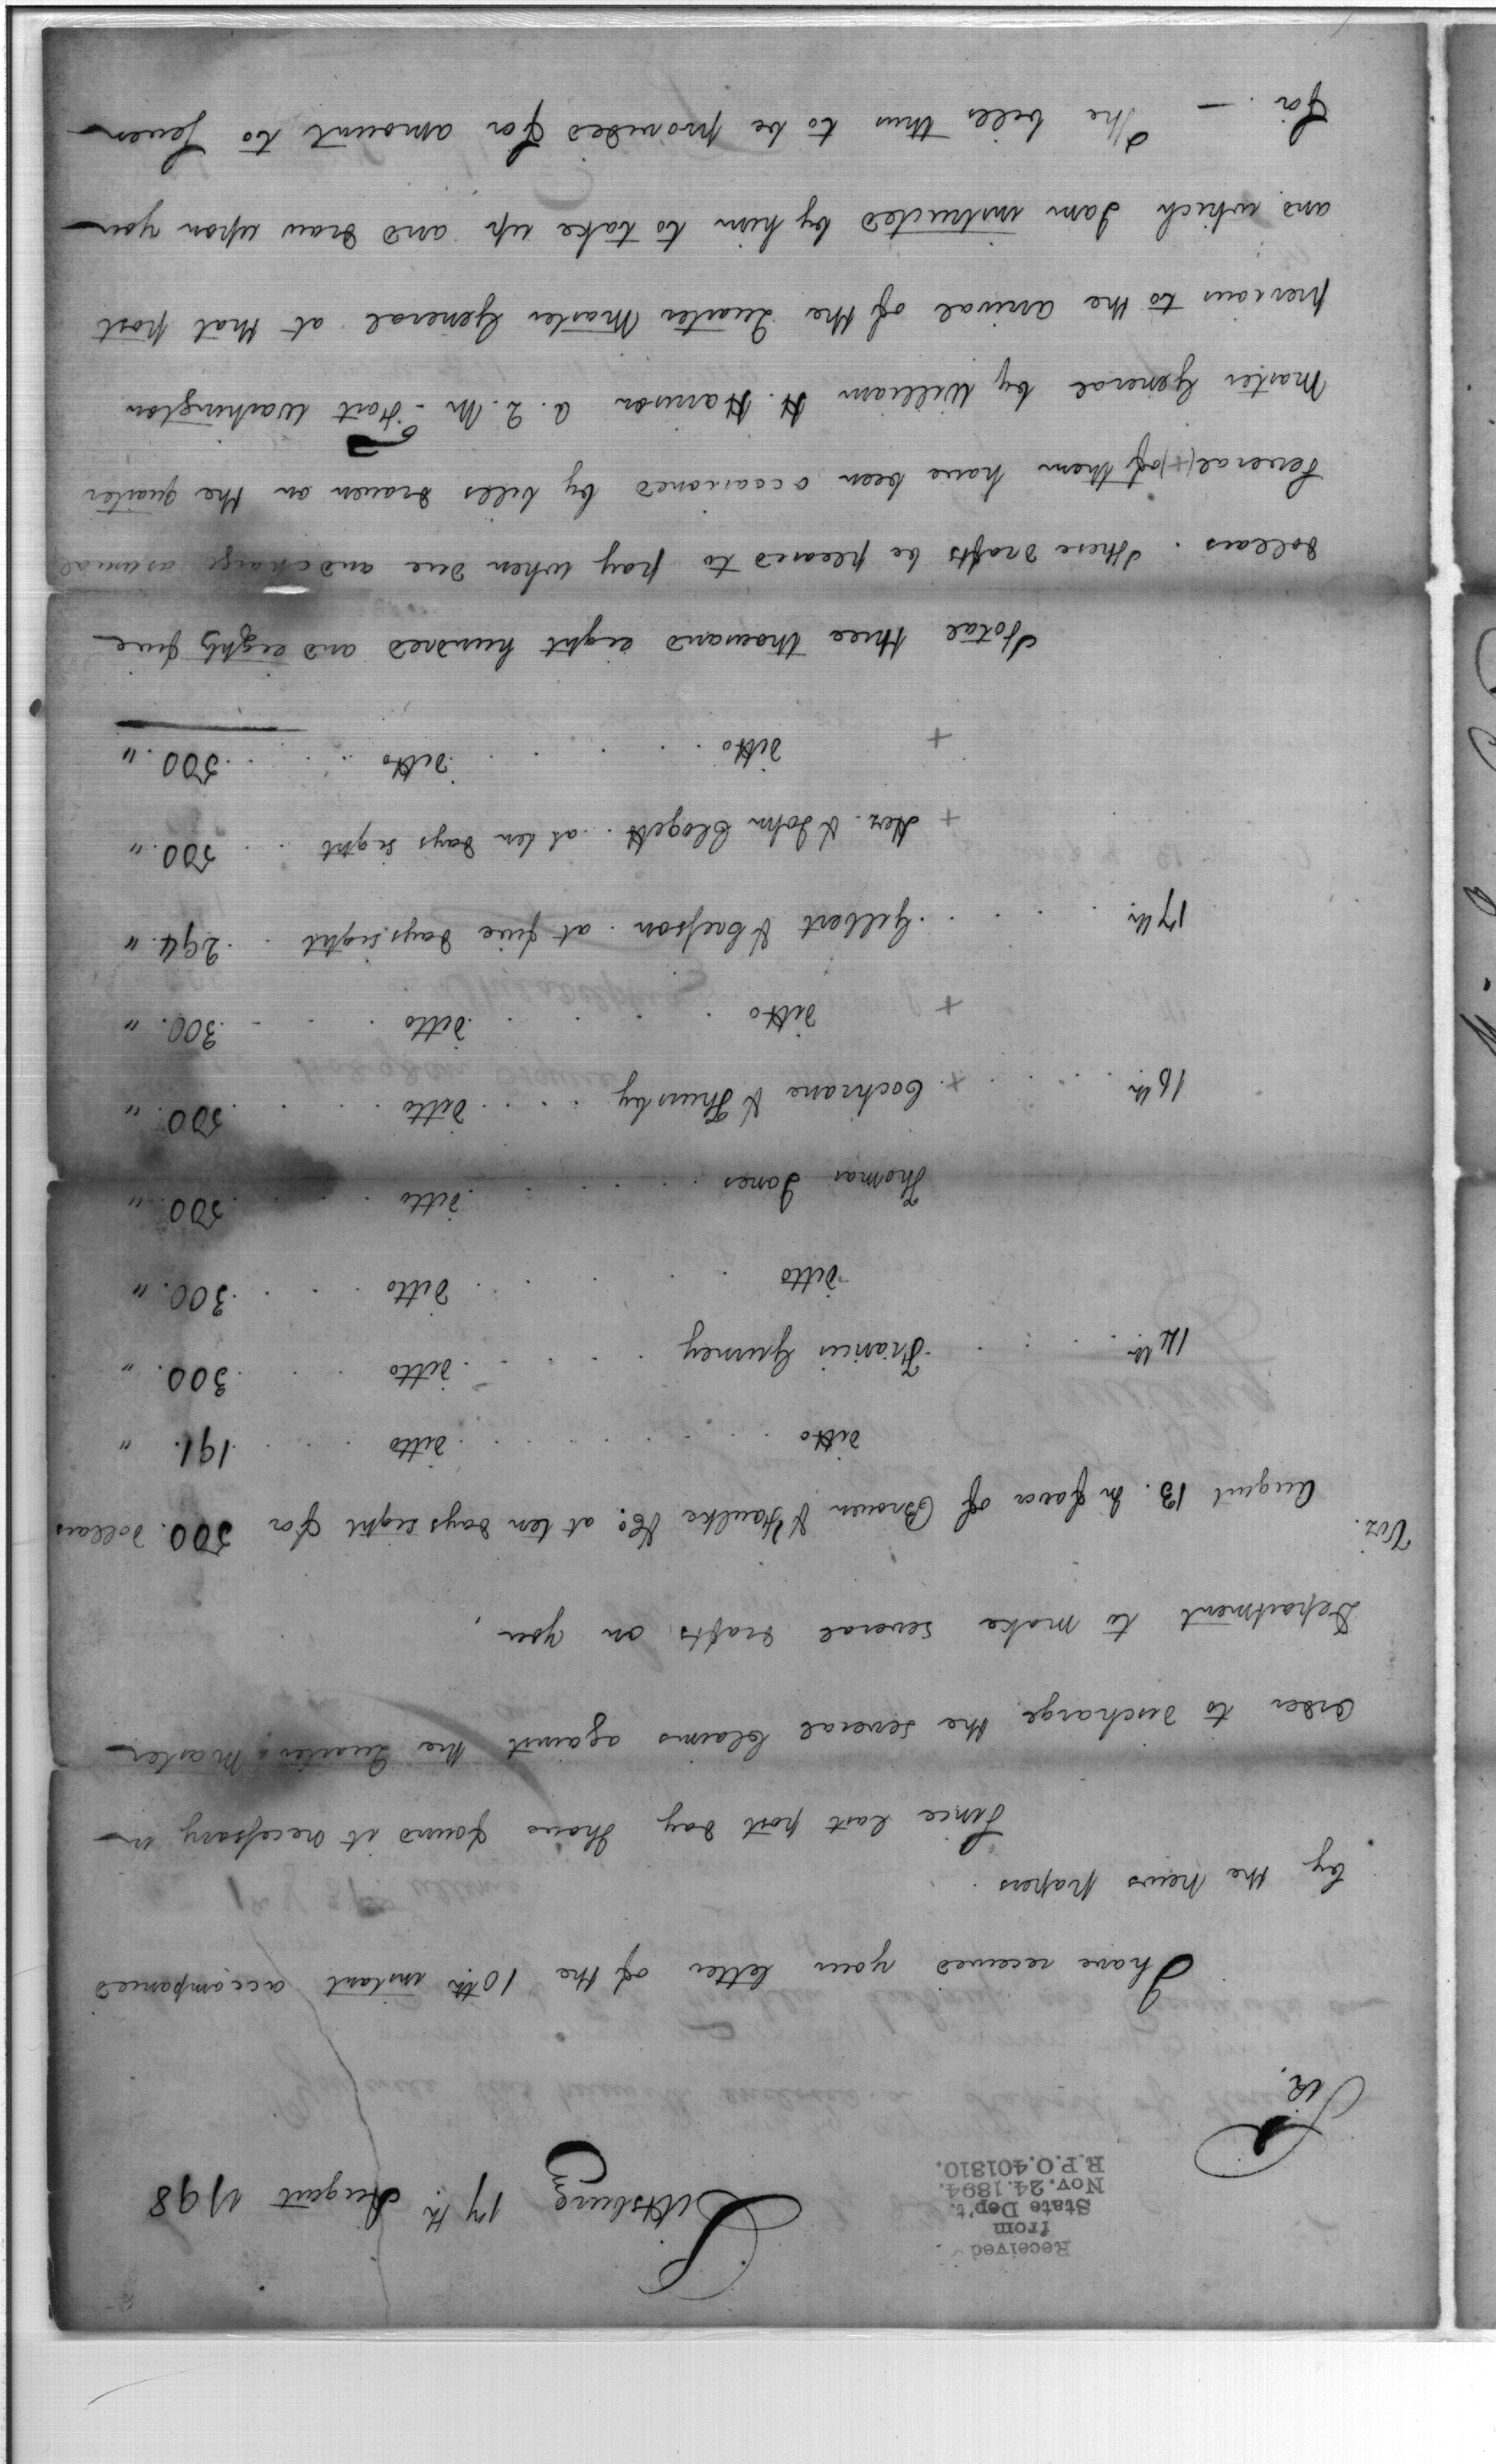 Pittsburg 17th August 1798
Received
from
State Dep't.
Nov. 24. 1894.
R.P.O. 401810.
Sir.
I have received your letter of the 10th instant accompanied
by the news papers.
Since last post day I have found it necessary in
order to discharge the several Claims against the Quarter Master
Department to make several drafts on you,
Viz.
August 13. In favor of Brown & Faulke &Co. at ten days sight for 500. Dollars
ditto ditto 191. "
14th Francis Gurney ditto 300. "
ditto ditto 300. "
Thomas Jones ditto 500. "
16th + Cochrane & Thursby ditto 500. "
+ ditto ditto 300. "
17th Gilbert & Cresson. at five days sight 294. "
+ Hez. & John Clogett. at ten days sight 500. "
+ ditto ditto 500. "
Total three thousand eight hundred and eighty five
dollars. These drafts be pleased to pay when due and charge as usual
Several (+) of them have been occasioned by bills drawn on the quarter
Master General by William H. Harrison A. Q. M. Fort Washington
previous to the arrival of the Quarter Master General at that post
and which I am instructed by him to take up and draw upon you
for. — The bills thus to be provided for amount to Seven